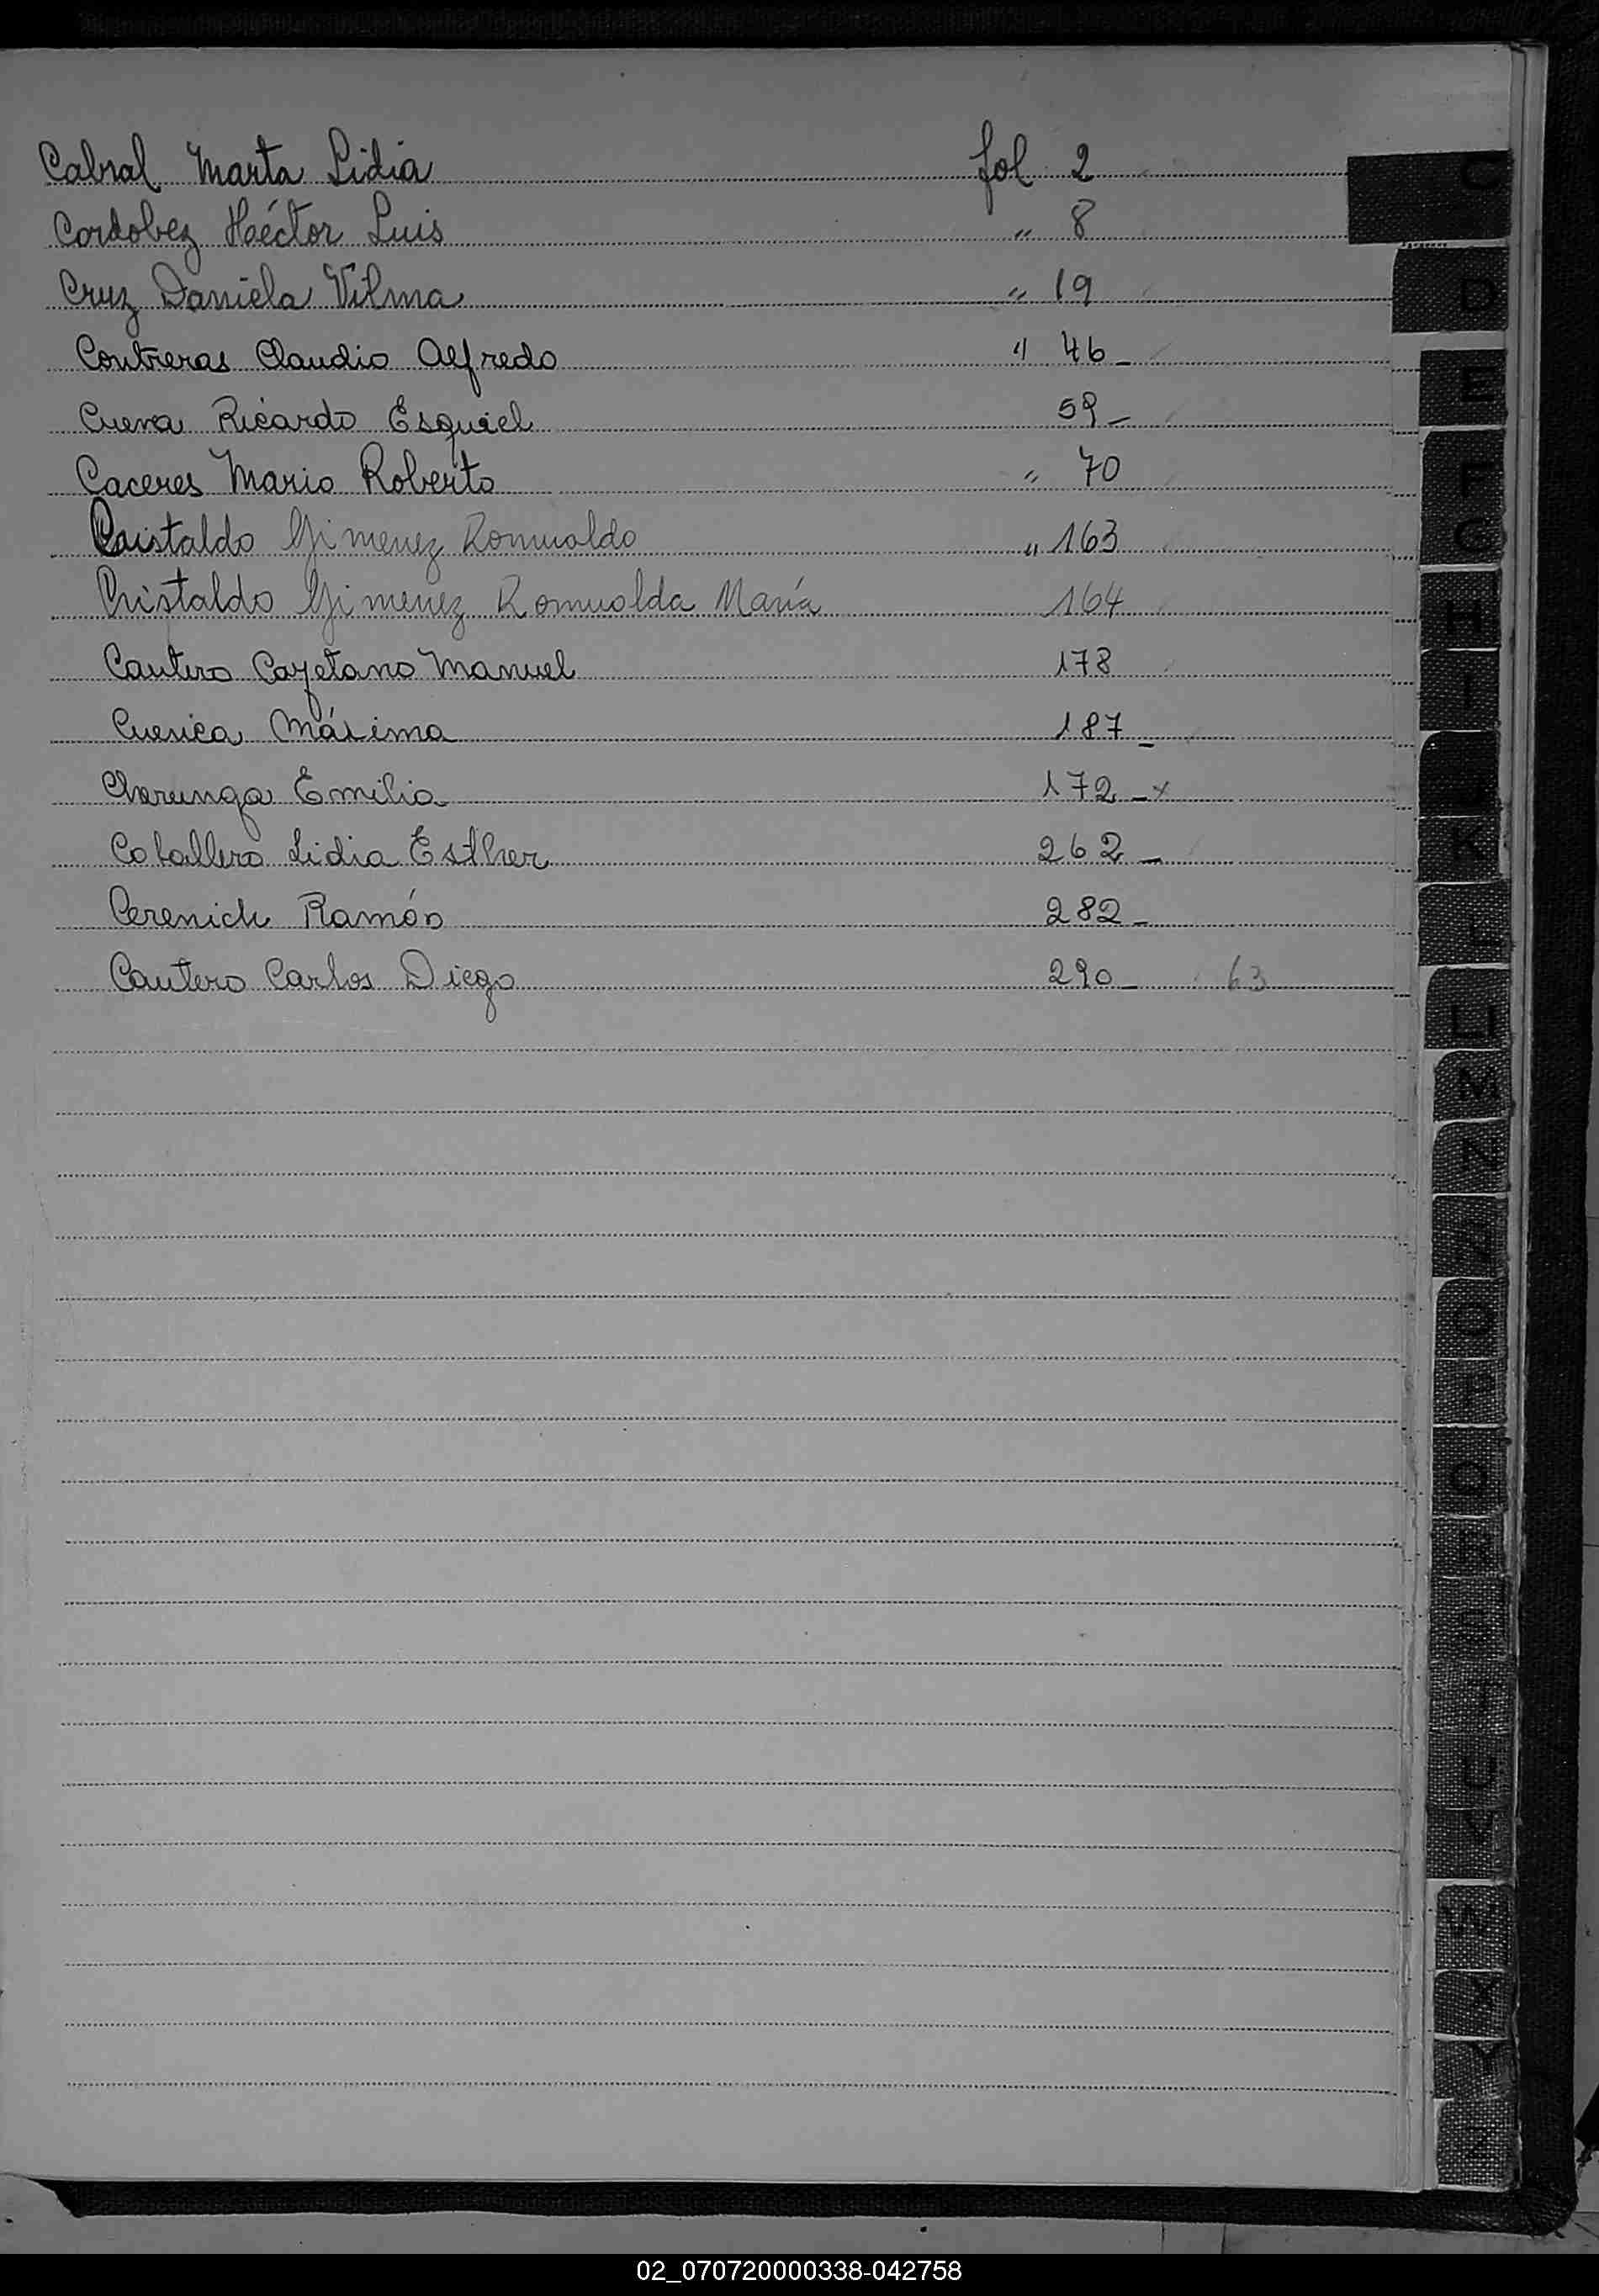 Cabral Marta Lidia fol 2
Cordobez Héctor Luis " 8
Cruz Daniela Vilma " 19
Contreras Claudio Alfredo " 46_
Cueva Ricardo Esquiel 59_
Caceres Mario Roberto " 70
Cristaldo Gimenez Romualdo " 163
Cristaldo Gimenez Romualda María 164
Cantero Cayetano Manuel 178
Cuenca Máxima 187_
Emilia 172_x
Caballero Lidia Esther 262_
Cerenich Ramón 282_
Cantero Carlos Diego 290_ 63
C
D
E
F
G
H
I
J
K
L
LL
M
N
Ñ
O
P
Q
R
S
T
U
V
W
X
Y
Z
02_070720000338-042758